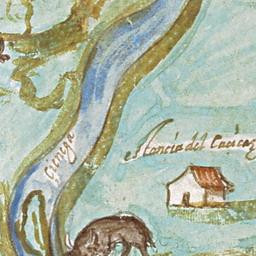 Cienega
estancia del Cacicaz